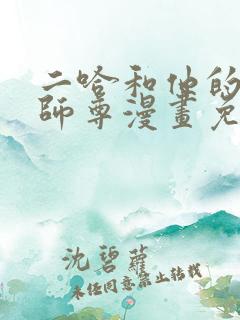 二哈和他的
師尊漫畫免
沈碧蘿
未任同意禁止转载